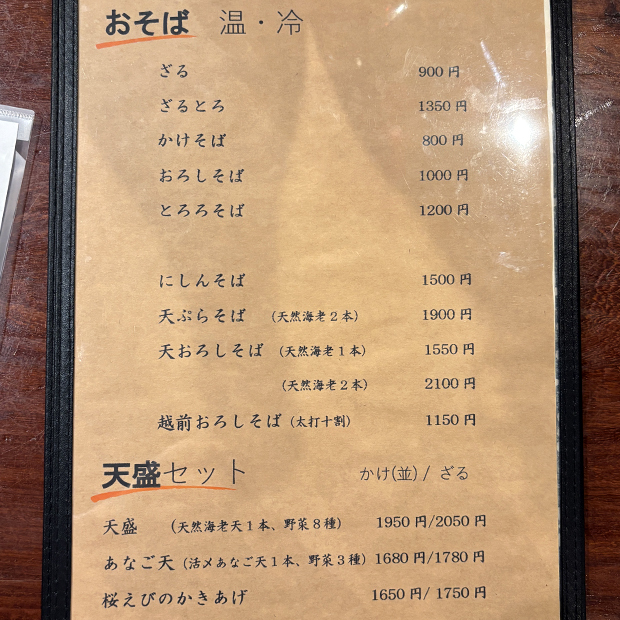 おそば 温・冷
ざる 900円
ざるとろ 1350円
かけそば 800円
おろしそば 1000円
とろろそば 1200円
にしんそば 1500円
天ぷらそば (天然海老2本) 1900円
天おろしそば (天然海老1本) 1550円
(天然海老2本) 2100円
越前おろしそば (太打十割) 1150円
天盛セット かけ(並) / ざる
天盛 (天然海老天1本、野菜8種) 1950円/2050円
あなご天 (活〆あなご天1本、野菜3種) 1680円/1780円
桜えびのかきあげ 1650円/ 1750円